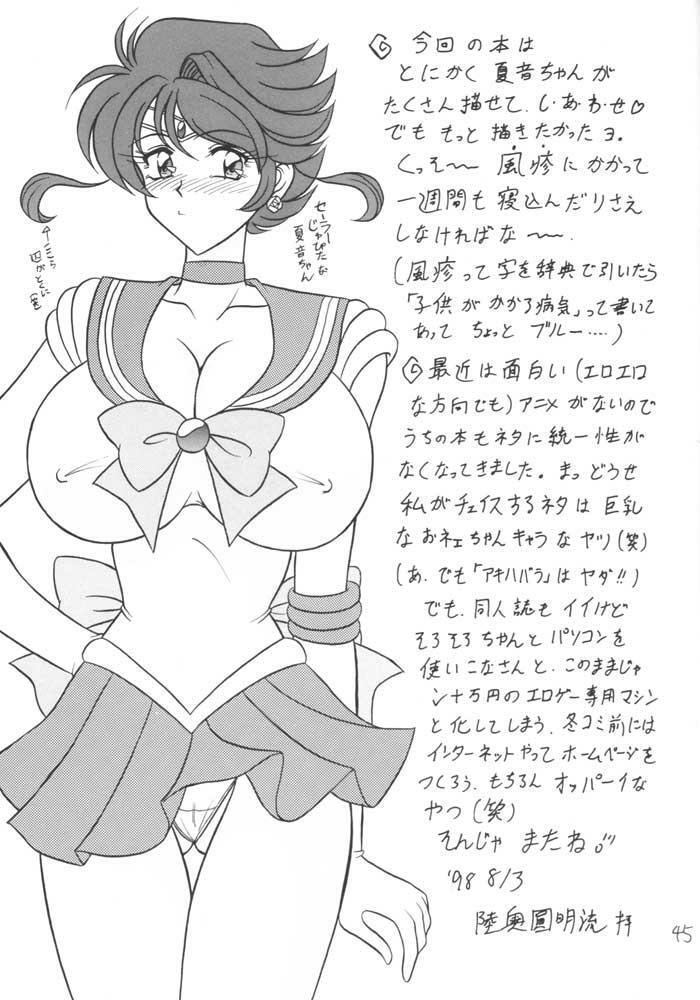 ◎ 今回の本は
とにかく 夏音ちゃんが
たくさん描せて、し・あ・わ・せ♡
でも もっと描きたかったヨ。
くっそ〜〜 風疹にかかって
一週間も寝込んだりさえ
しなければな〜〜.
(風疹って字を辞典で引いたら
「子供がかかる病気」って書いて
あって ちょっと ブルー‥‥)
◎最近は面白い(エロエロ
な方向でも)アニメがないので
うちの本もネタに統一性が
なくなってきました。まっ どうせ
私がチェイスするネタは巨乳
なおネェちゃんキャラなヤツ(笑)
(あ、でも「アキハバラ」はヤダ!!)
でも、同人誌もイイけど
そろそろちゃんとパソコンを
使いこなさんと、このままじゃ
ン十万円のエロゲー専用マシン
と化してしまう、冬コミ前には
インターネットやってホームページを
つくろう、もちろん オッパーイな
やつ(笑)
そんじゃ またね
'98 8/3
陸奥圓明流 拝
45
セーラー
じゅぴたな
夏音ちゃん